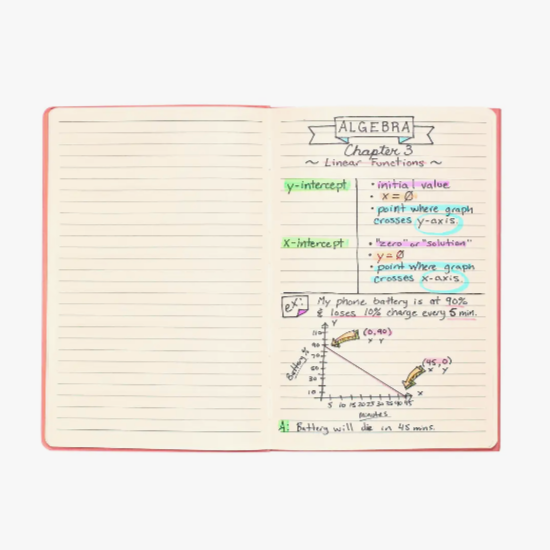 ALGEBRA
Chapter 3
~ Linear Functions ~
y-intercept
• initial value
• x = Ø
• point where graph
crosses y-axis.
x-intercept
• "zero" or "solution"
• y = Ø
• point where graph
crosses x-axis.
ex:
My phone battery is at 90%
& loses 10% charge every 5 min.
y
(0,90)
x y
(45,0)
x y
Battery %
110
90
70
50
30
10
x
5 10 15 20 25 30 35 40 45
minutes
A: Battery will die in 45 mins.